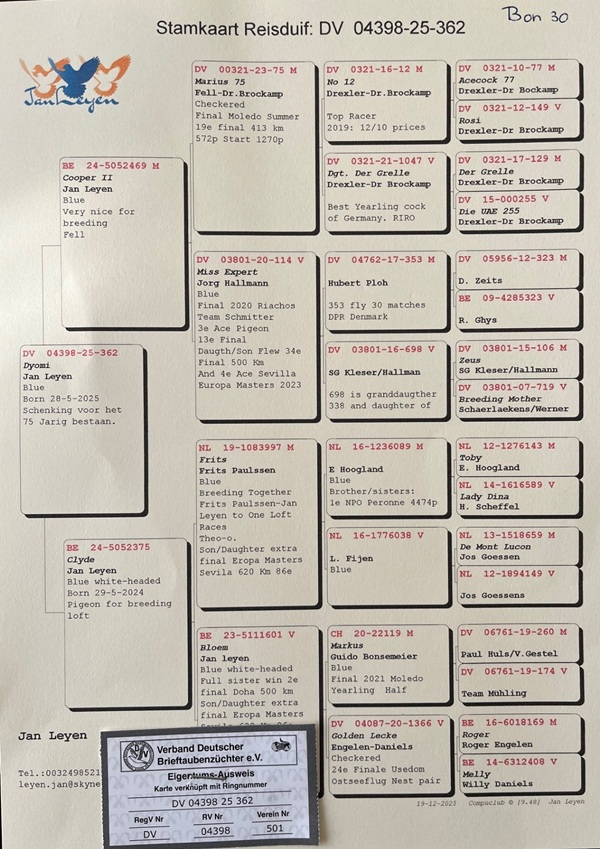 Bon 30
Stamkaart Reisduif: DV 04398-25-362
Jan Leyen
DV 04398-25-362
Dyomi
Jan Leyen
Blue
Born 28-5-2025
Schenking voor het
75 Jarig bestaan.
BE 24-5052469 M
Cooper II
Jan Leyen
Blue
Very nice for
breeding
Fell
BE 24-5052375
Clyde
Jan Leyen
Blue white-headed
Born 29-5-2024
Pigeon for breeding
loft
DV 00321-23-75 M
Marius 75
Fell-Dr.Brockamp
Checkered
Final Moledo Summer
19e final 413 km
572p Start 1270p
DV 03801-20-114 V
Miss Expert
Jorg Hallmann
Blue
Final 2020 Riachos
Team Schmitter
3e Ace Pigeon
13e Final
Daugth/Son Flew 34e
Final 500 Km
And 4e Ace Sevilla
Europa Masters 2023
NL 19-1083997 M
Frits
Frits Paulssen
Blue
Breeding Together
Frits Paulssen-Jan
Leyen to One Loft
Races
Theo-o.
Son/Daughter extra
final Eropa Masters
Sevila 620 Km 86e
BE 23-5111601 V
Bloem
Jan leyen
Blue white-headed
Full sister win 2e
final Doha 500 km
Son/Daughter extra
final Eropa Masters
DV 0321-16-12 M
No 12
Drexler-Dr.Brockamp
Top Racer
2019: 12/10 prices
DV 0321-21-1047 V
Dgt. Der Grelle
Drexler-Dr Brockamp
Best Yearling cock
of Germany. RIRO
DV 04762-17-353 M
Hubert Ploh
353 fly 30 matches
DPR Denmark
DV 03801-16-698 V
SG Kleser/Hallman
698 is granddaugther
338 and daughter of
NL 16-1236089 M
E Hoogland
Blue
Brother/sisters:
1e NPO Peronne 4474p
NL 16-1776038 V
L. Fijen
Blue
CH 20-22119 M
Markus
Guido Bonsemeier
Blue
Final 2021 Moledo
Yearling Half
DV 04087-20-1366 V
Golden Lecke
Engelen-Daniels
Checkered
24e Finale Usedom
Ostseeflug Nest pair
DV 0321-10-77 M
Acecock 77
Drexler-Dr Bockamp
DV 0321-12-149 V
Rosi
Drexler-Dr Brockamp
DV 0321-17-129 M
Der Grelle
Drexler-Dr Brockamp
DV 15-000255 V
Die UAE 255
Drexler-Dr Brockamp
DV 05956-12-323 M
D. Zeits
BE 09-4285323 V
R. Ghys
DV 03801-15-106 M
Zeus
SG Kleser/Hallmann
DV 03801-07-719 V
Breeding Mother
Schaerlaekens/Werner
NL 12-1276143 M
Toby
E. Hoogland
NL 14-1616589 V
Lady Dina
H. Scheffel
NL 13-1518659 M
De Mont Lucon
Jos Goessen
NL 12-1894149 V
Jos Goessens
DV 06761-19-260 M
Paul Huls/V.Gestel
DV 06761-19-174 V
Team Mühling
BE 16-6018169 M
Roger
Roger Engelen
BE 14-6312408 V
Melly
Willy Daniels
Jan Leyen
Tel.:0032498521
leyen.jan@skyne
Verband Deutscher
Brieftaubenzüchter e.V.
Eigentums-Ausweis
Karte verknüpft mit Ringnummer
DV 04398 25 362
RegV Nr RV Nr Verein Nr
DV 04398 501
19-12-2025 Compuclub © [9.48] Jan Leyen